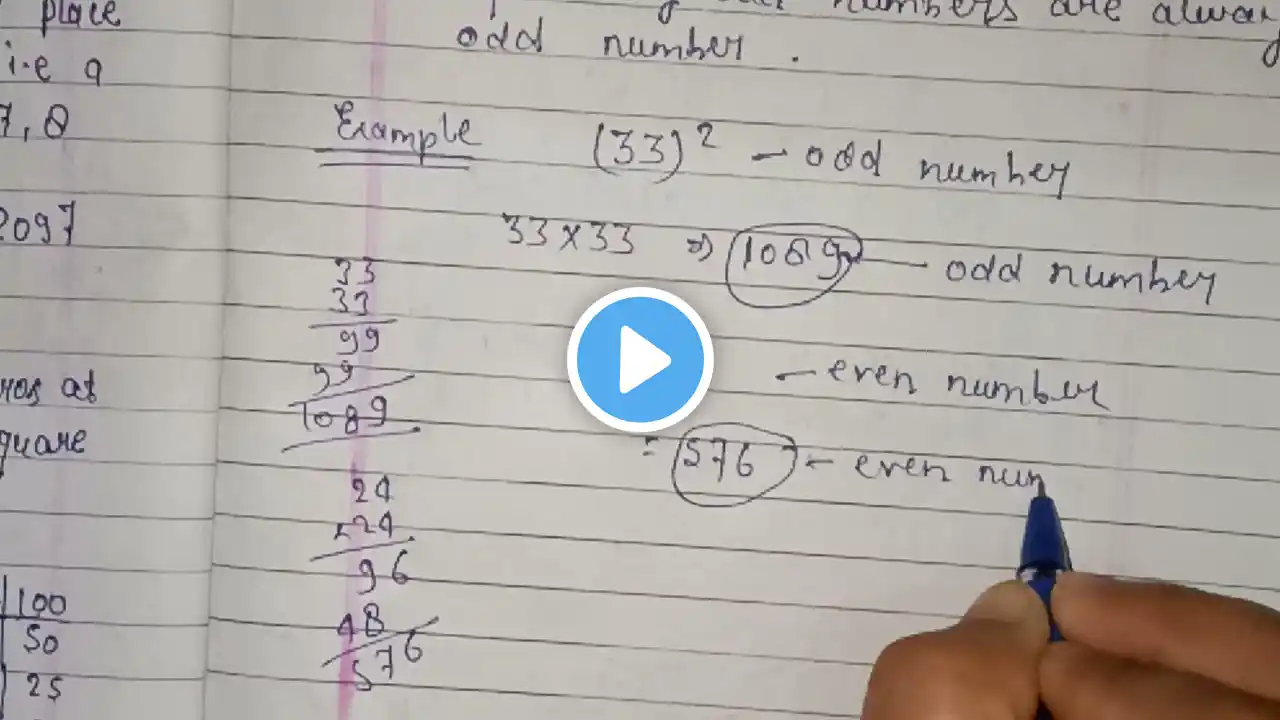 place
i.e 9
7, 8
2097
ros at
quare
100
50
25
numbers are alway
odd number .
Example (33)² - odd number
33 x 33 ⇒ 1089 - odd number
33
33
99
99
1089
- even number
= 576 - even num
24
x24
96
48
576